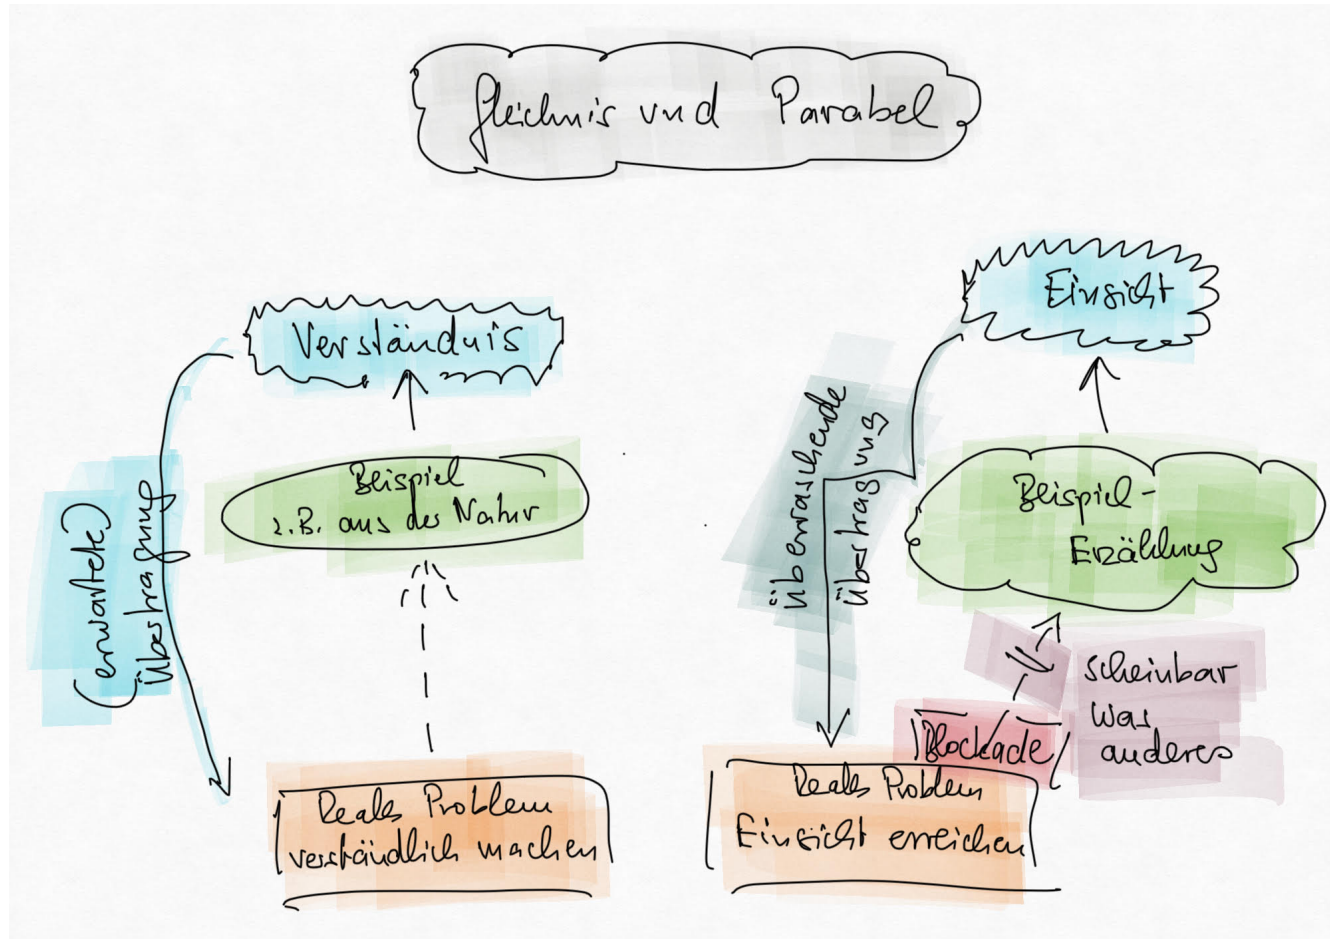 Gleichnis und Parabel
Verständnis
Beispiel
z.B. aus der Natur
(erwartete)
Übertragung
Reales Problem
verständlich machen
Einsicht
Überraschende
Übertragung
Beispiel-
Erzählung
scheinbar
was
anderes
Blockade
Reales Problem
Einsicht erreichen